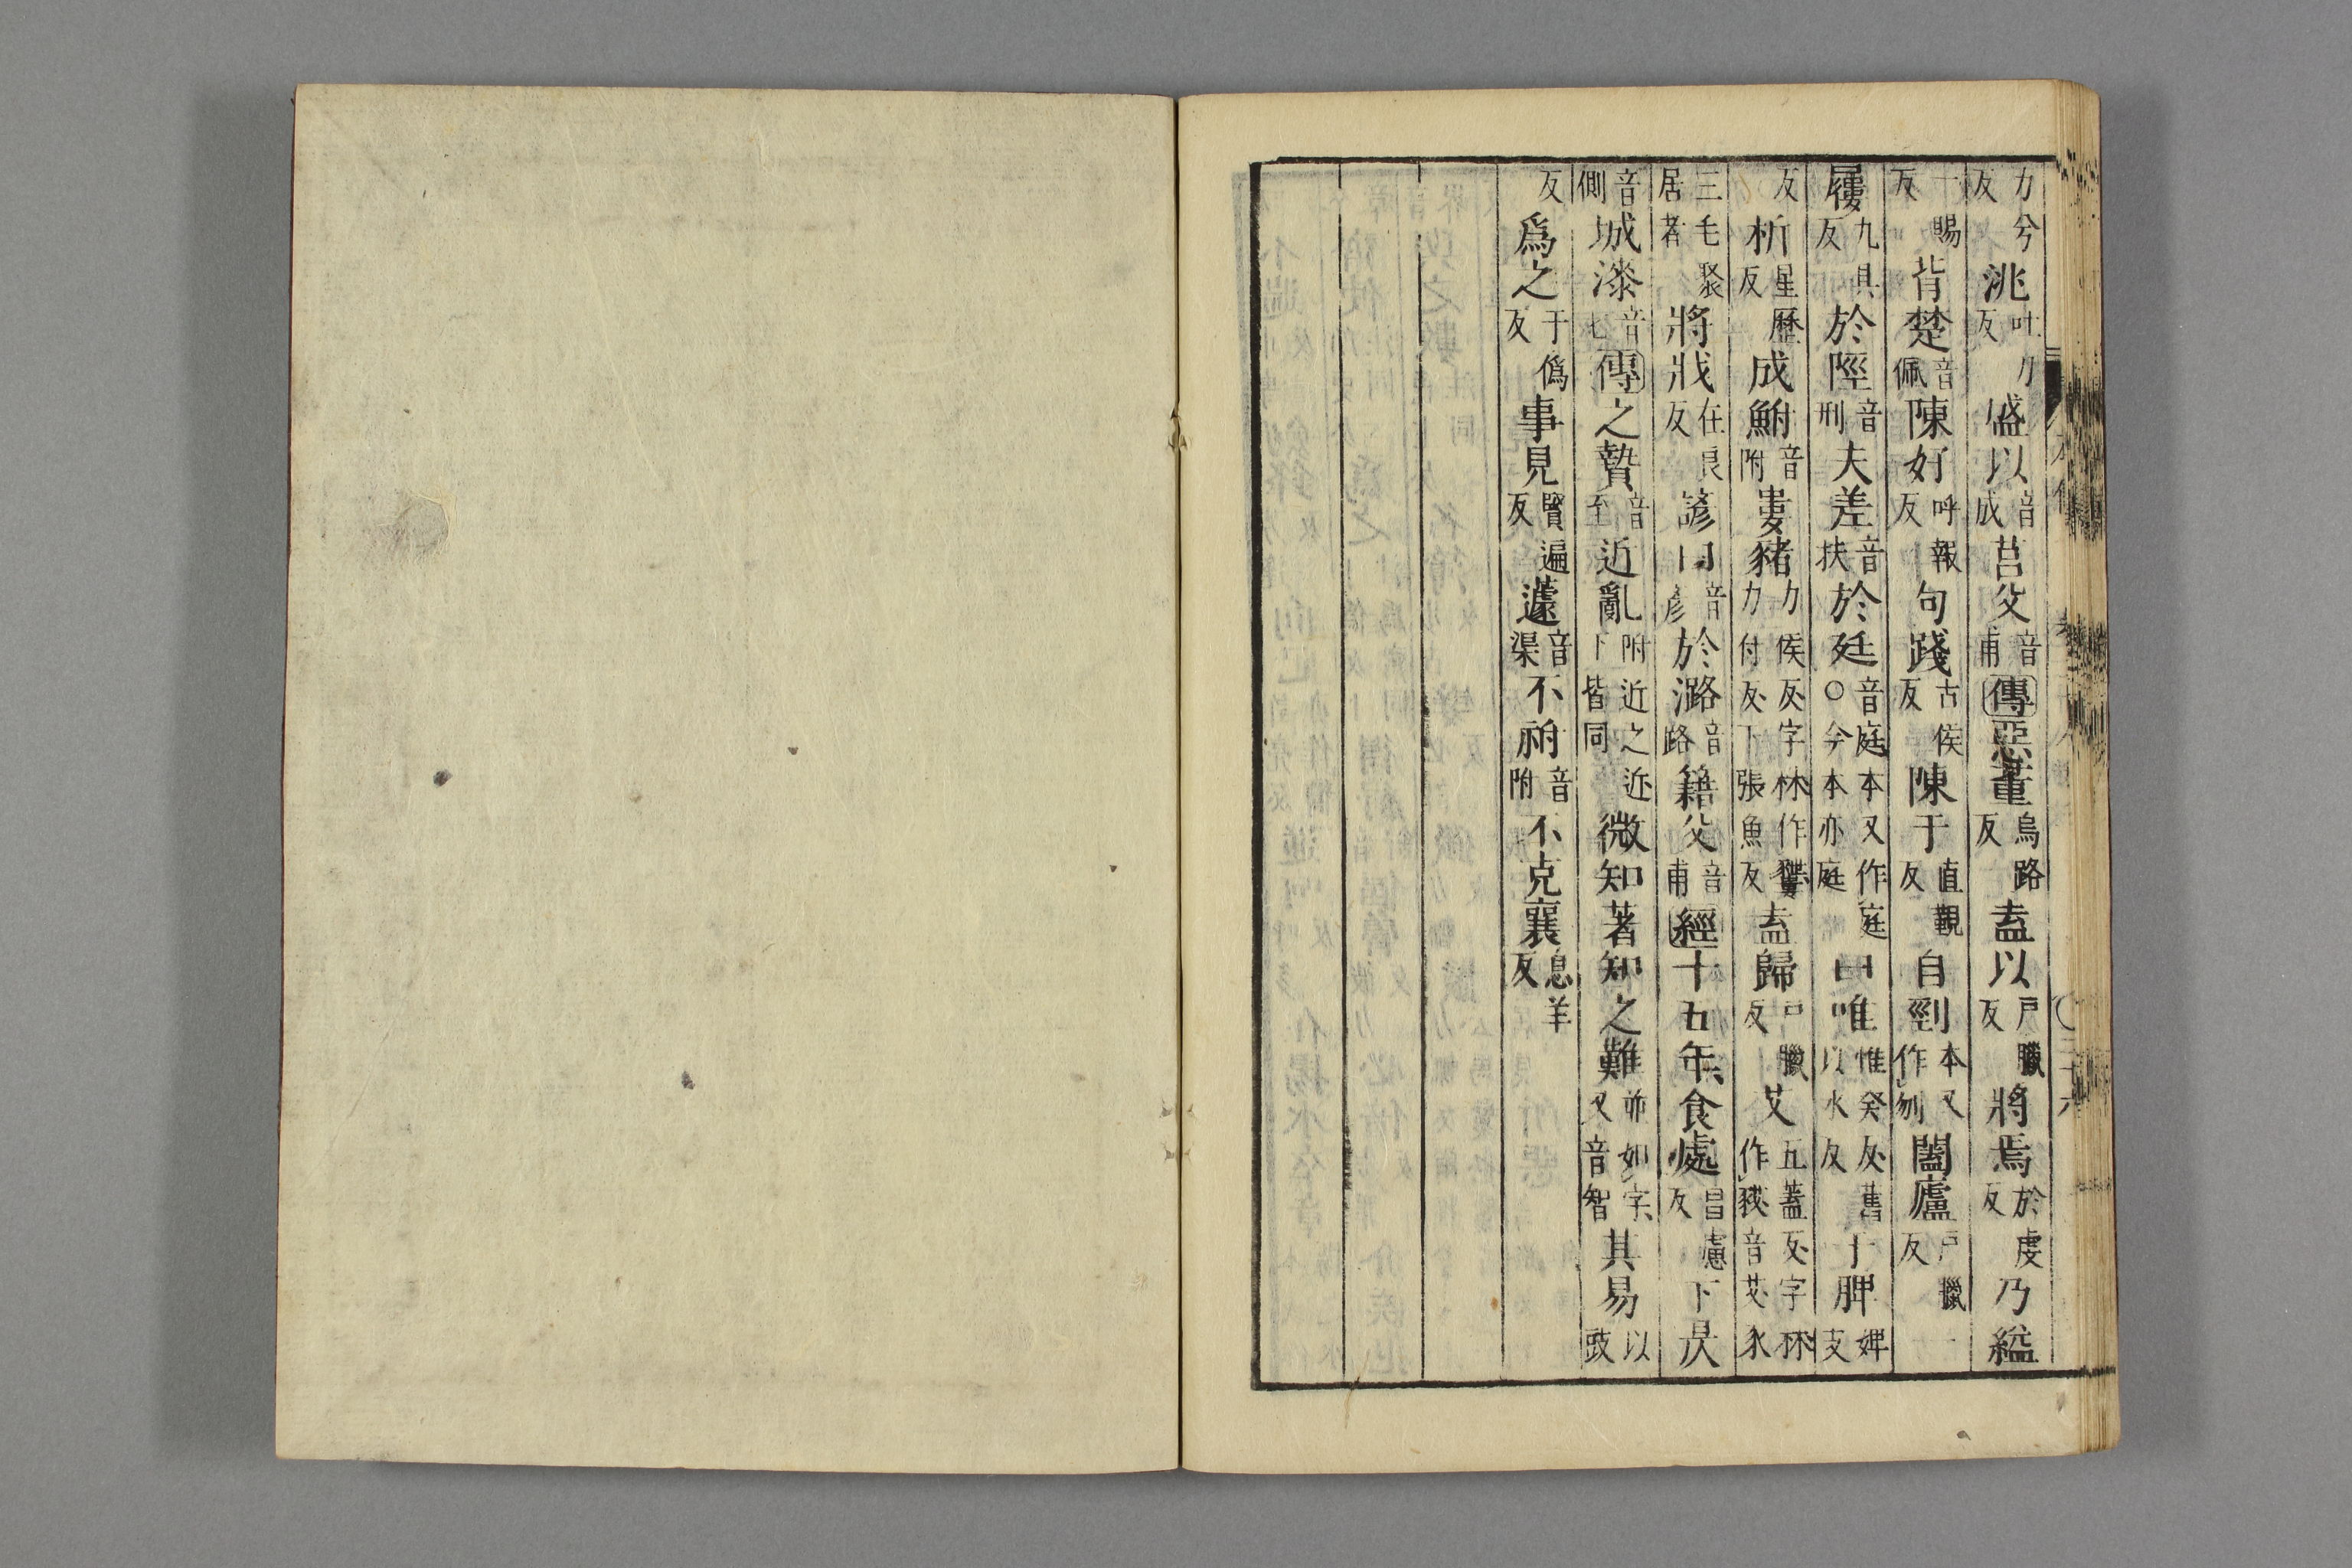 力兮反洮吐刀反盛以音成莒父音甫傳惡董烏路反盍以戶臘反將焉於虔反乃縊
一賜反背楚音佩陳好呼報反句踐古侯反陳于直覲反自剄本又作刎闔廬戶臘反一
屨九具反於陘音刑夫差音扶於廷音庭本又作庭○今本亦庭曰唯惟癸反舊以水反于脾婢支
反析星歷反成鮒音附婁豬力侯反字林作力付反下張魚反盍歸戶臘反艾五蓋反字林作音艾豕
三毛聚居者將戕在良反諺曰音彥於潞音路籍父音甫經十五年食處昌慮反下昃
音側城漆音七傳之贄音至近亂附近之近下皆同微知著知之難並如字又音智其易以豉
反爲之于僞反事見賢遍反蘧音渠不祔音附不克襄息羊反